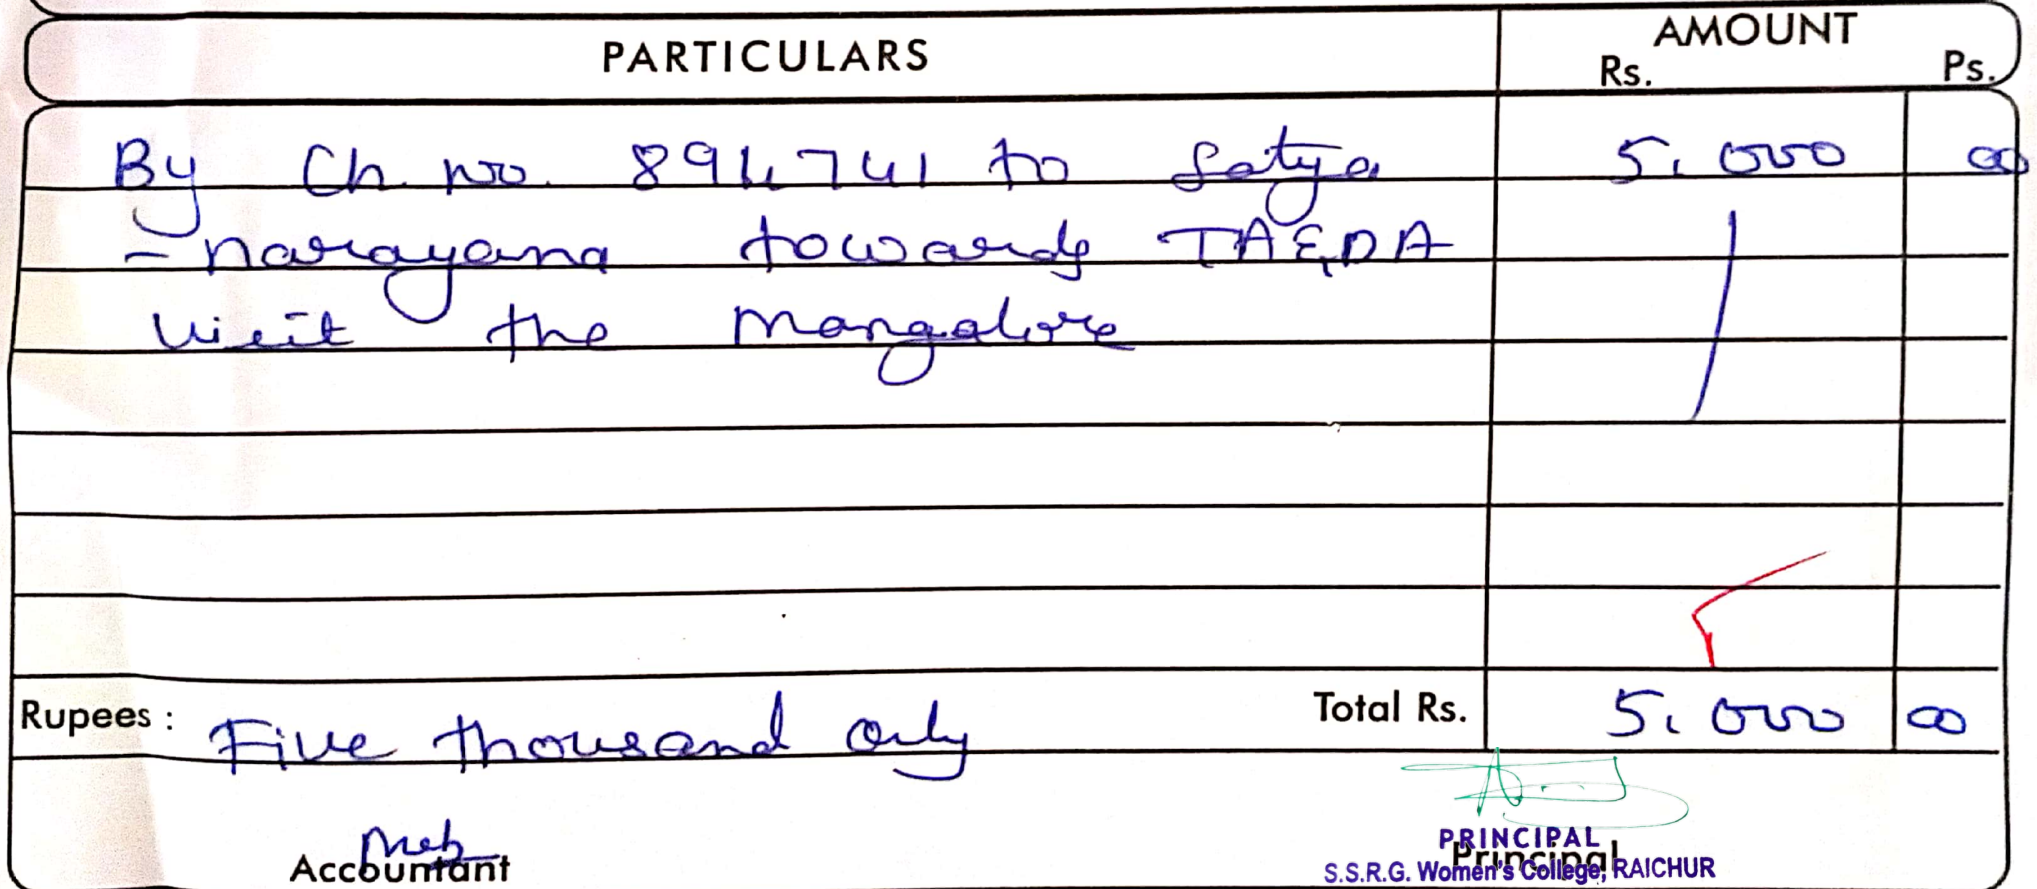 PARTICULARS AMOUNT
Rs. Ps.
By Ch. no. 894741 to Satya 5,000 00
- narayana towards TA & DA
visit the Mangalore
Rupees : Five thousand only Total Rs. 5,000 00
Accountant
PRINCIPAL
Principal
S.S.R.G. Women's College, RAICHUR